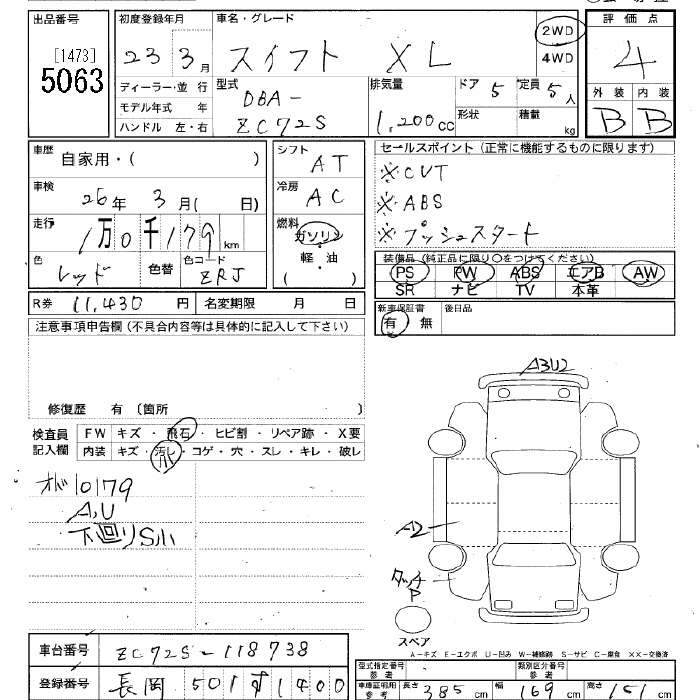 出品番号
[1473]
5063
初度登録年月
23 3月
車名・グレード
スイフト XL
2WD
4WD
評価点
4
外装 内装
B B
ディーラー・並行
モデル年式 年
ハンドル 左・右
型式
DBA-
ZC72S
排気量
1,200cc
ドア 5
形状
定員 5人
積量 kg
車歴
自家用・( )
車検
26年 3月( 日)
走行
1万0千179km
色
レッド
色替
色コード
ZRJ
シフト
AT
冷房
AC
燃料
ガソリン
軽・油
( )
R券 11,430円
名変期限 月 日
セールスポイント(正常に機能するものに限ります)
※CVT
※ABS
※プッシュスタート
装備品(純正品に限り○をつけてください)
PS PW ABS エアB AW
SR ナビ TV 本革
新車保証書
有 無
後日品
注意事項申告欄(不具合内容等は具体的に記入して下さい)
修復歴 有 〔箇所 〕
検査員
記入欄
FW キズ・飛石・ヒビ割・リペア跡・X要
内装 キズ・汚レ・コゲ・穴・スレ・キレ・破レ
小
オド10179
A,U
下廻りS小
A3U2
A2
タッチ
P
スペア
A-キズ E-エクボ U-凹み W-補修跡 S-サビ C-腐食 XX-交換済
車台番号 ZC72S-118738
登録番号 長岡 501す1400
型式指定番号
参考
類別区分番号
参考
車庫証明用
参考
長さ 385cm 幅 169cm 高さ 151cm